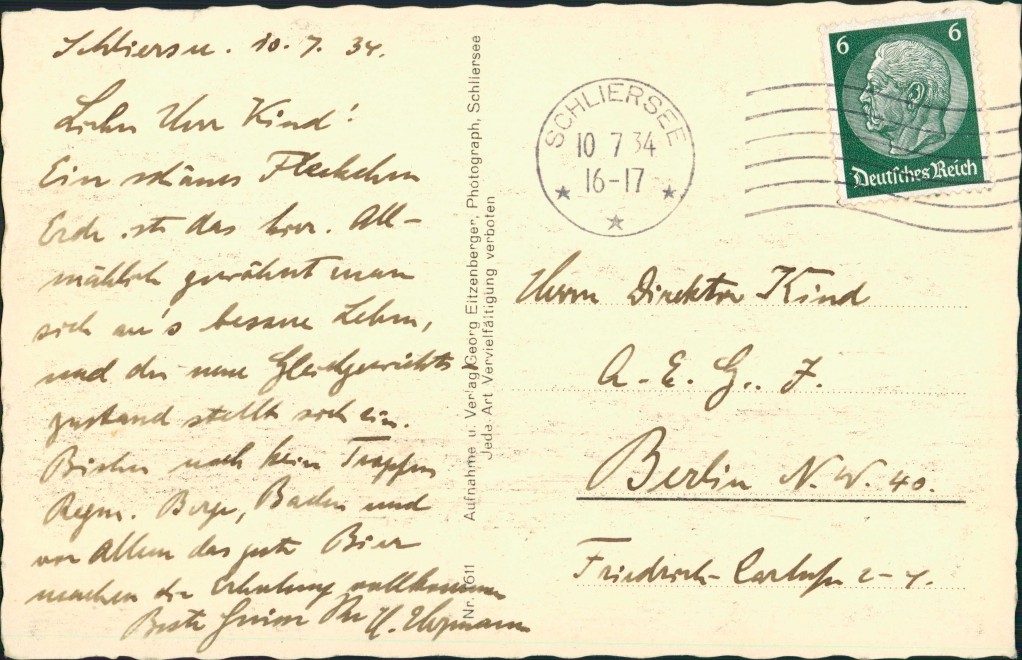 Schliersee. 10.7.34.
Lieber Herr Kind!
Ein schönes Fleckchen
Erde ist das hier. All-
mählich gewöhnt man
sich an's bessere Leben,
und der neue Gleichgewichts
zustand stellt sich ein.
Bisher noch kein Tropfen
Regen. Berge, Baden und
vor Allem das gute Bier
machen die Erholung vollkommen
Beste Grüsse Ihr H.
Nr. 611 Aufnahme u. Verlag Georg Eitzenberger, Photograph, Schliersee
Jede Art Vervielfältigung verboten
SCHLIERSEE
10 7 34
16-17
6 6
Deutsches Reich
Herrn Direktor Kind
A. E. G.
Berlin N. W. 40.
Friedrich-Carlufer 2-4.